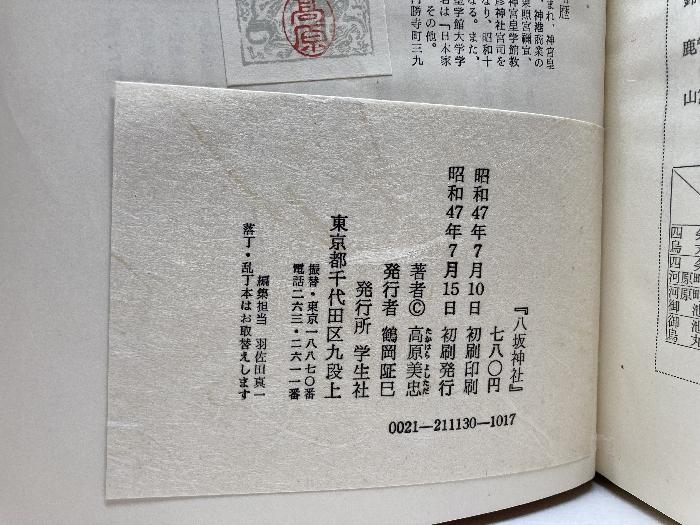 『八坂神社』
七八〇円
昭和47年7月10日 初刷印刷
昭和47年7月15日 初刷発行
著者© 高原美忠
たかはら よしただ
発行者 鶴岡阷巳
発行所 学生社
東京都千代田区九段上
振替・東京一八八七〇番
電話二六三・二六一一番
編集担当 羽佐田真一
落丁・乱丁本はお取替えします
0021—211130—1017
高原
まれ、神宮皇
、神港商業の
東照宮禰宜、
神宮皇学館教
彦神社宮司を
なり、昭和十
なる。また、
皇学館大学学
名は「日本家
その他。
勝寺町三九
鹿
山
四
烏
四
河原町
河原町
御池
御池
烏丸